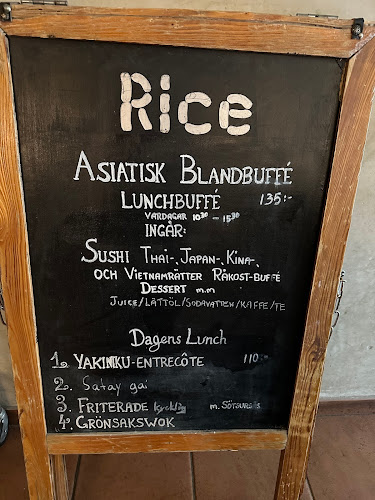 Rice
ASIATISK BLANDBUFFÉ
LUNCHBUFFÉ 135:-
VARDAGAR 10³⁰ - 15³⁰
INGÅR:
SUSHI THAI-, JAPAN-, KINA-,
OCH VIETNAMRÄTTER RÅKOST-BUFFÉ
DESSERT m.m
JUICE/LÄTTÖL/SODAVATTEN/KAFFE/TE
Dagens Lunch
1. YAKINIKU-ENTRECÔTE 110:-
2. Satay gai
3. FRITERADE kyckling m. SÖTSURSÅS
4. GRÖNSAKSWOK